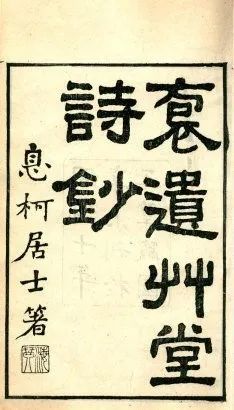 裒遺艸堂
詩鈔
息柯居士箸